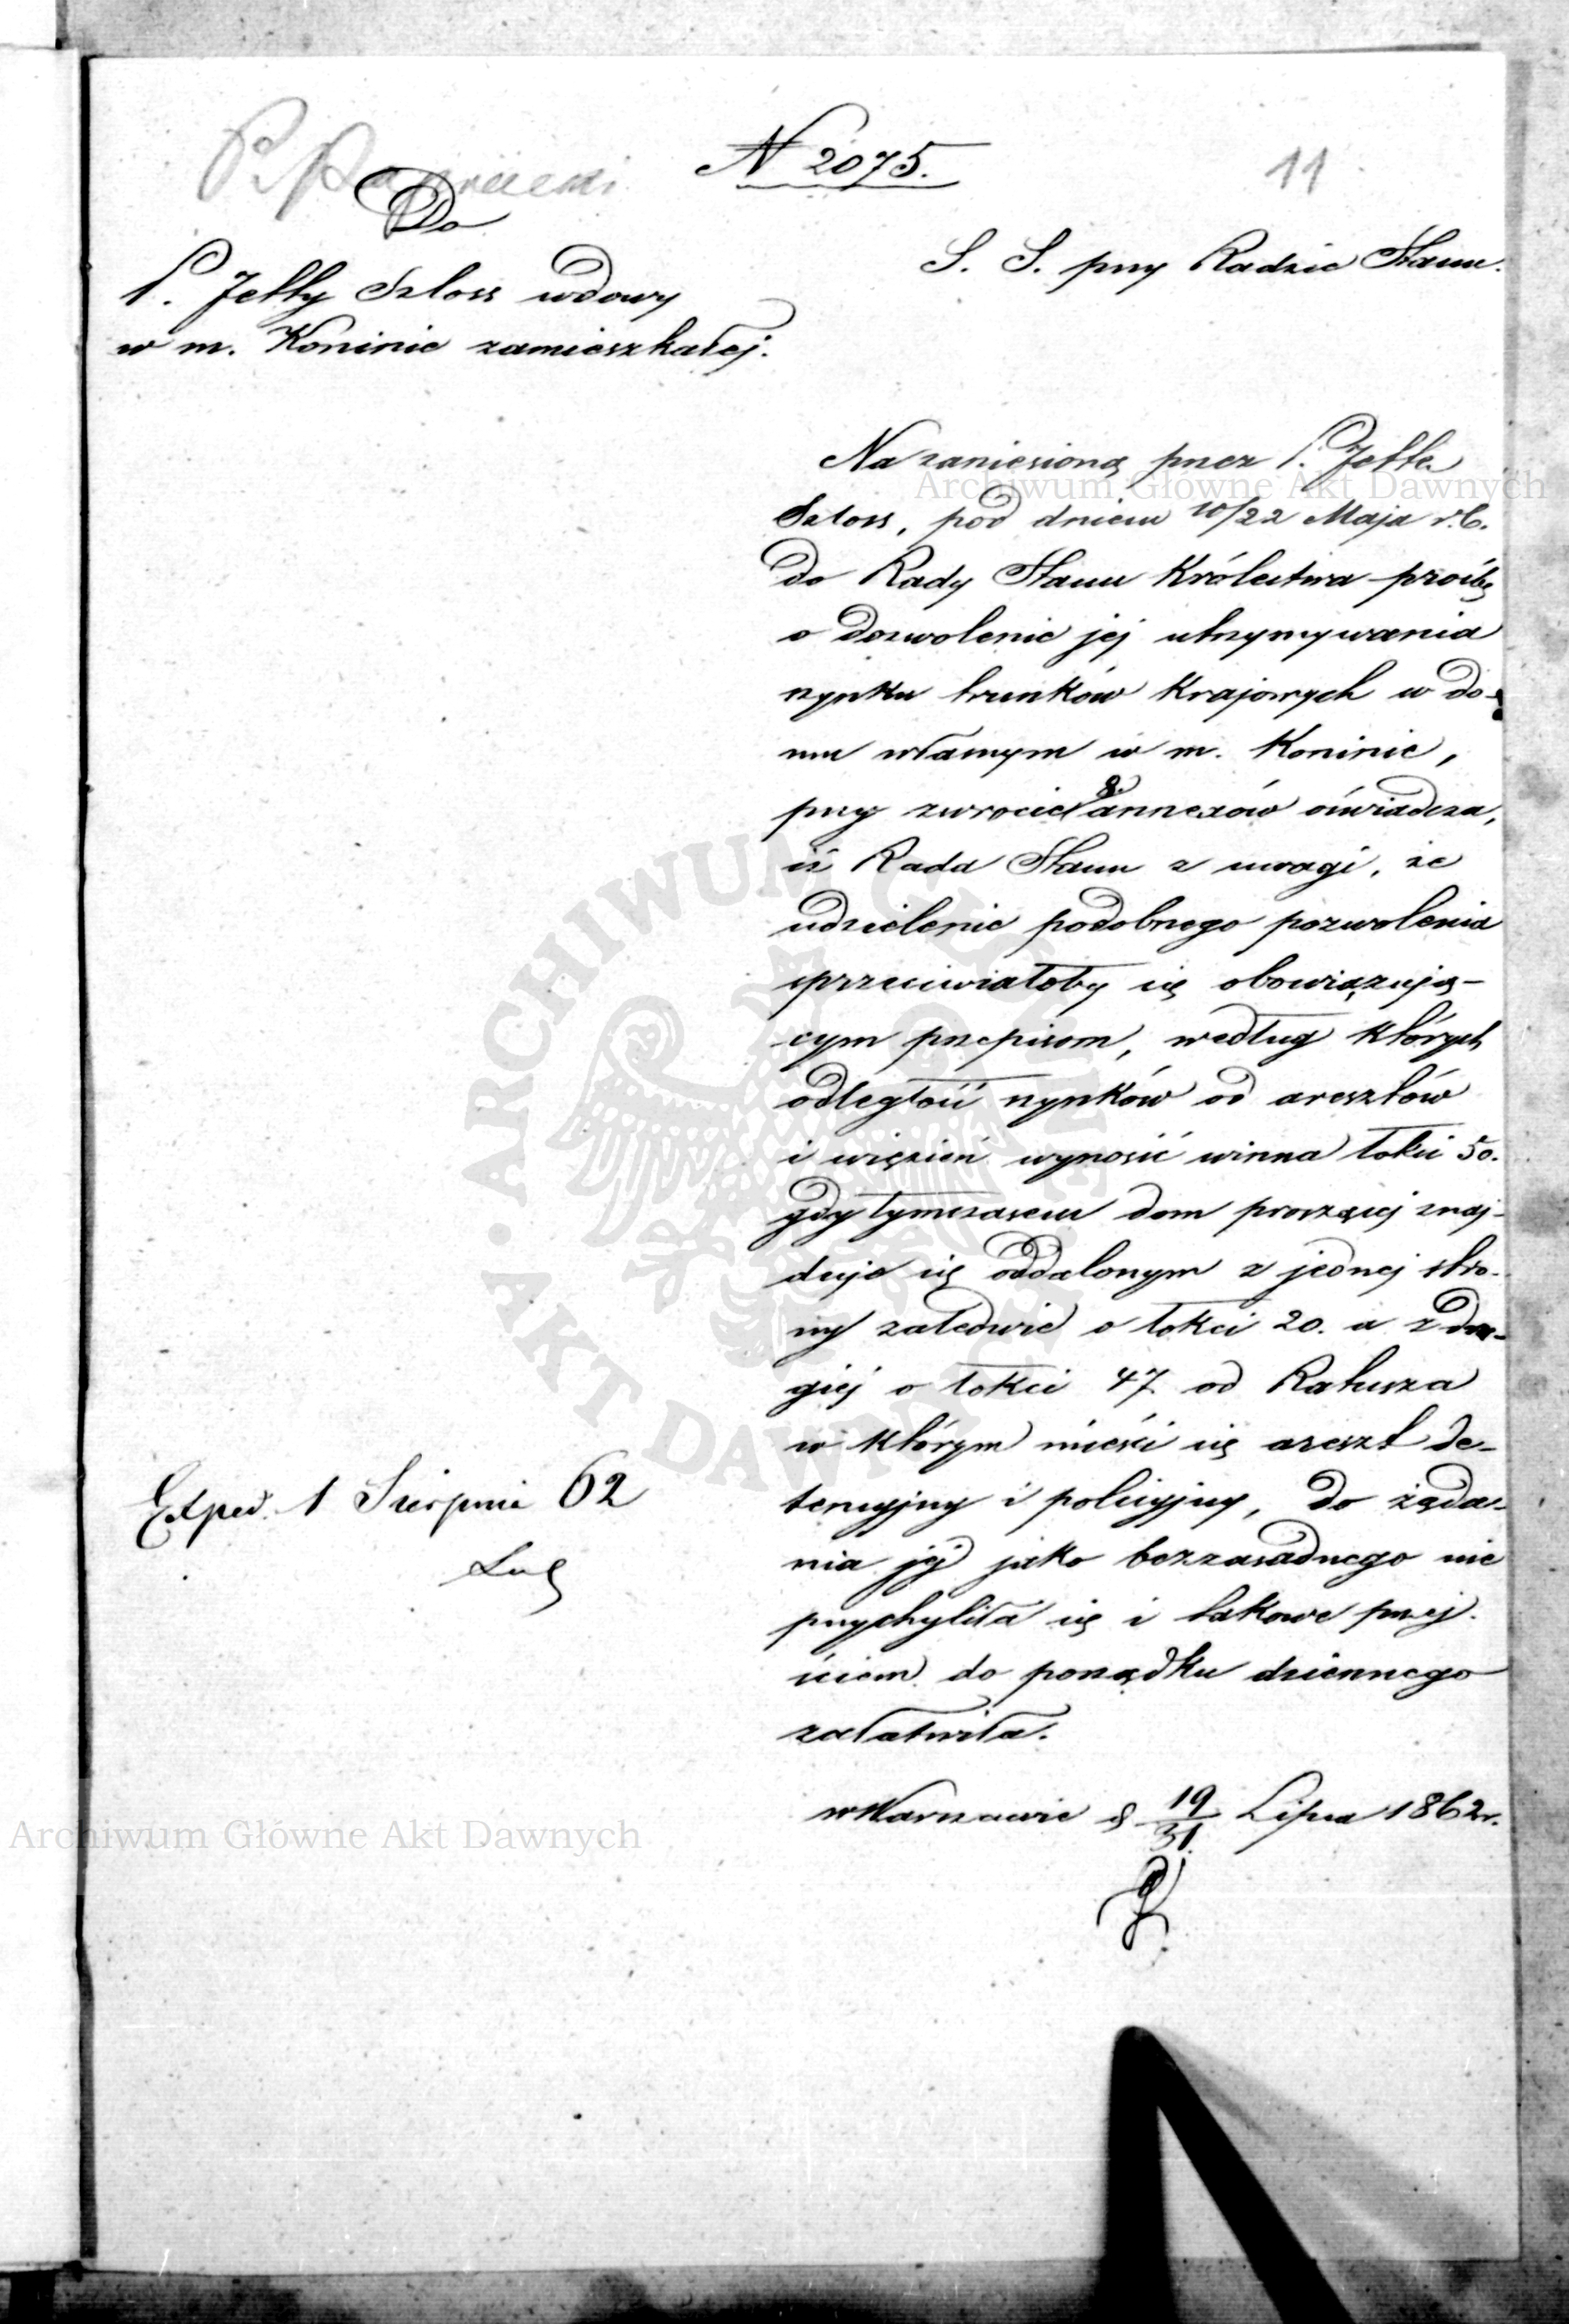 N 2075.
11
Do
P. Jetty Szloss wdowy
w m. Koninie zamieszkałej.
S. S. przy Radzie Stanu.
Na zaniesioną przez P. Jettę
Szloss, pod dniem 10/22 Maja r.b.
do Rady Stanu Królestwa prośbę
o dozwolenie jej utrzymywania
szynku trunków Krajowych w do-
mu własnym w m. Koninie,
przy zwrocie 8. annexów oświadcza,
iż Rada Stanu z uwagi, że
udzielenie podobnego pozwolenia
sprzeciwiałoby się obowiązują-
cym przepisom, według których
odległość szynków od aresztów
i więzień wynosić winna łokci 50.
gdy tymczasem dom proszącej znaj-
duje się oddalonym z jednej stro-
ny zaledwie o łokci 20. a z dru-
giej o łokci 47. od Ratusza
w którym mieści się areszt de-
tencyjny i policyjny, do żąda-
nia jej jako bezzasadnego nie
przychyliła się i takowe przej-
ściem do porządku dziennego
załatwiła.
w Warszawie d 19/31 Lipca 1862 r.
Exped. 1 Sierpnia 62
Archiwum Główne Akt Dawnych
ARCHIWUM GŁÓWNE AKT DAWNYCH
Archiwum Główne Akt Dawnych